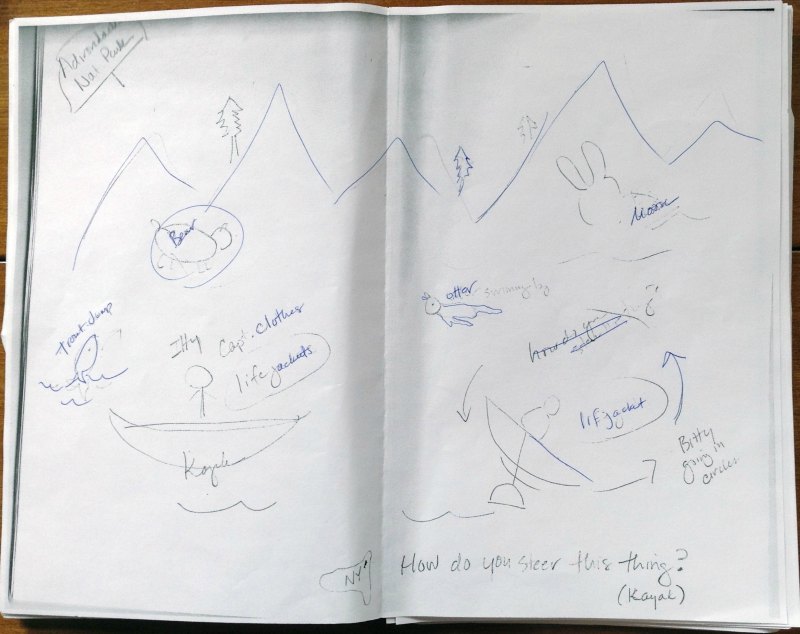 Nat Park
Bear
Moose
otter swimming by
Trout Jump
Itty
Capt. clothes
life jackets
how do you
life jacket
Kayak
Bitty
going in
circles
NY
How do you steer this thing?
(Kayak)